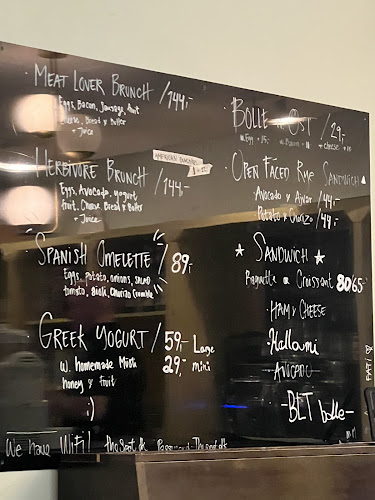 · MEAT LOVER BRUNCH / 144,-
Eggs, Bacon, Sausage, fruit
Cheese, Bread & Butter
+ Juice
HERBIVORE BRUNCH / 144,-
Eggs, Avocado, yogurt
fruit, Cheese, Bread & Butter
+ Juice
· SPANISH OMELETTE / 89,-
Eggs, potato, onions, salad
tomato, aioli, Chorizo Crumble
· GREEK YOGURT / 59,- Large
29,- mini
w. homemade Müsli
honey & fruit
:)
· BOLLE m. OST / 29,-
+ cheese + 10
· OPEN FACED RYE SANDWICH
Avocado & Ajvar / 44,-
Potato & Chorizo / 49,-
★ SANDWICH ★
Baguette or Croissant 80/65,-
-HAM & CHEESE
-Halloumi
-AVOCADO
-BLT bolle-
We have WiFi!